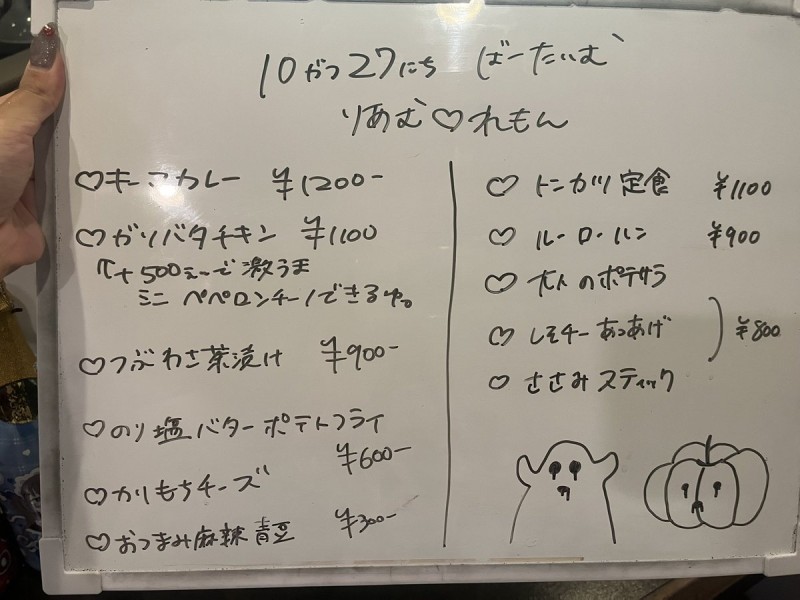 10がつ27にち ばーたいむ
りあむ♡れもん
♡キーマカレー ¥1200-
♡ガリバタチキン ¥1100
↑+500えんで激うま
ミニ ペペロンチーノできるゆ。
♡つぶわさ茶漬け ¥900-
♡のり塩バターポテトフライ
¥600-
♡かりもちチーズ
♡おつまみ麻辣青豆 ¥300-
♡トンカツ定食 ¥1100
♡ルーローハン ¥900
♡大人のポテサラ
♡しそチーあつあげ ¥800
♡ささみスティック